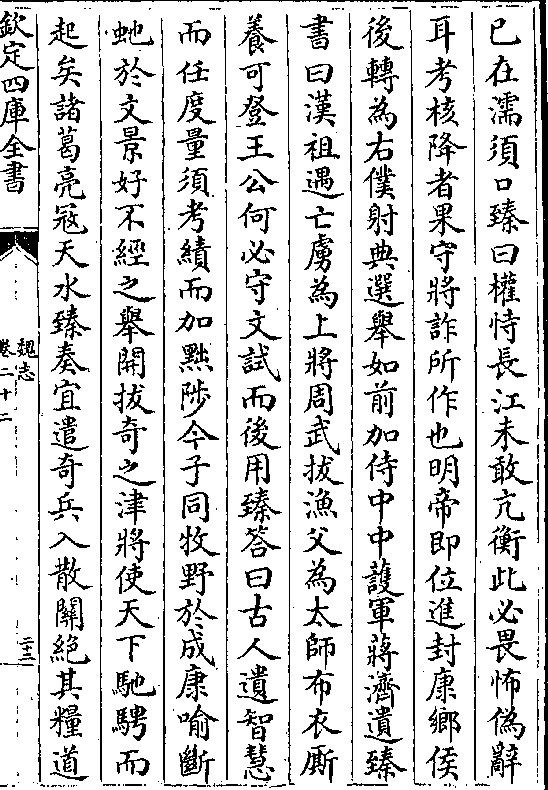 已在濡須口臻曰權恃長江未敢亢衡此必畏怖偽辭
耳考核降者果守將詐所作也明帝即位進封康鄉侯
後轉為右僕射典選舉如前加侍中中護軍蔣濟遺臻
書曰漢祖遇亡虜為上將周武拔漁父為太師布衣厮
養可登王公何必守文試而後用臻答曰古人遺智慧
而任度量須考績而加黜陟今子同牧野於成康喻斷
虵於文景好不經之舉開拔奇之津將使天下馳騁而
起矣諸葛亮冦天水臻奏宜遣奇兵入散關絶其糧道
欽定四庫全書
魏志
卷二十二
二十二